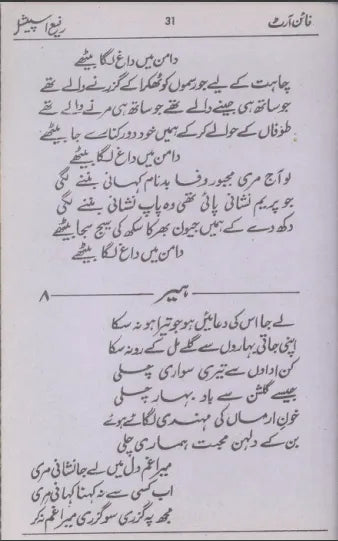 فائن آرٹ 31 رفیع اسپیشل
دامن میں داغ لگا بیٹھے
چاہت کے لیے جو رسموں کو ٹھکرا کے گزرنے والے تھے
جو ساتھ ہی جینے والے تھے جو ساتھ ہی مرنے والے تھے
طوفاں کے حوالے کر کے ہمیں خود دور کنارے جا بیٹھے
دامن میں داغ لگا بیٹھے
لو آج مری مجبور وفا بدنام کہانی بننے لگی
جو پریم نشانی پائی تھی وہ پاپ نشانی بننے لگی
دکھ دے کے ہمیں جیون بھر کا سکھ کی سیج سجا بیٹھے
دامن میں داغ لگا بیٹھے
ہیر ۸
لے جا اس کی دعائیں ہو جو تیرا ہو نہ سکا
اپنی جاتی بہاروں سے گلے مل کے رو نہ سکا
کن اداوں سے تیری سواری چلی
جیسے گلشن سے باد بہار چلی
خون ارماں کی مہندی لگائے ہوئے
بن کے دلہن محبت ہماری چلی
میرا غم دل میں لے جا نشانی مری
اب کسی سے نہ کہنا کہانی مری
مجھ پہ گزری سو گزری میرا غم نہ کر